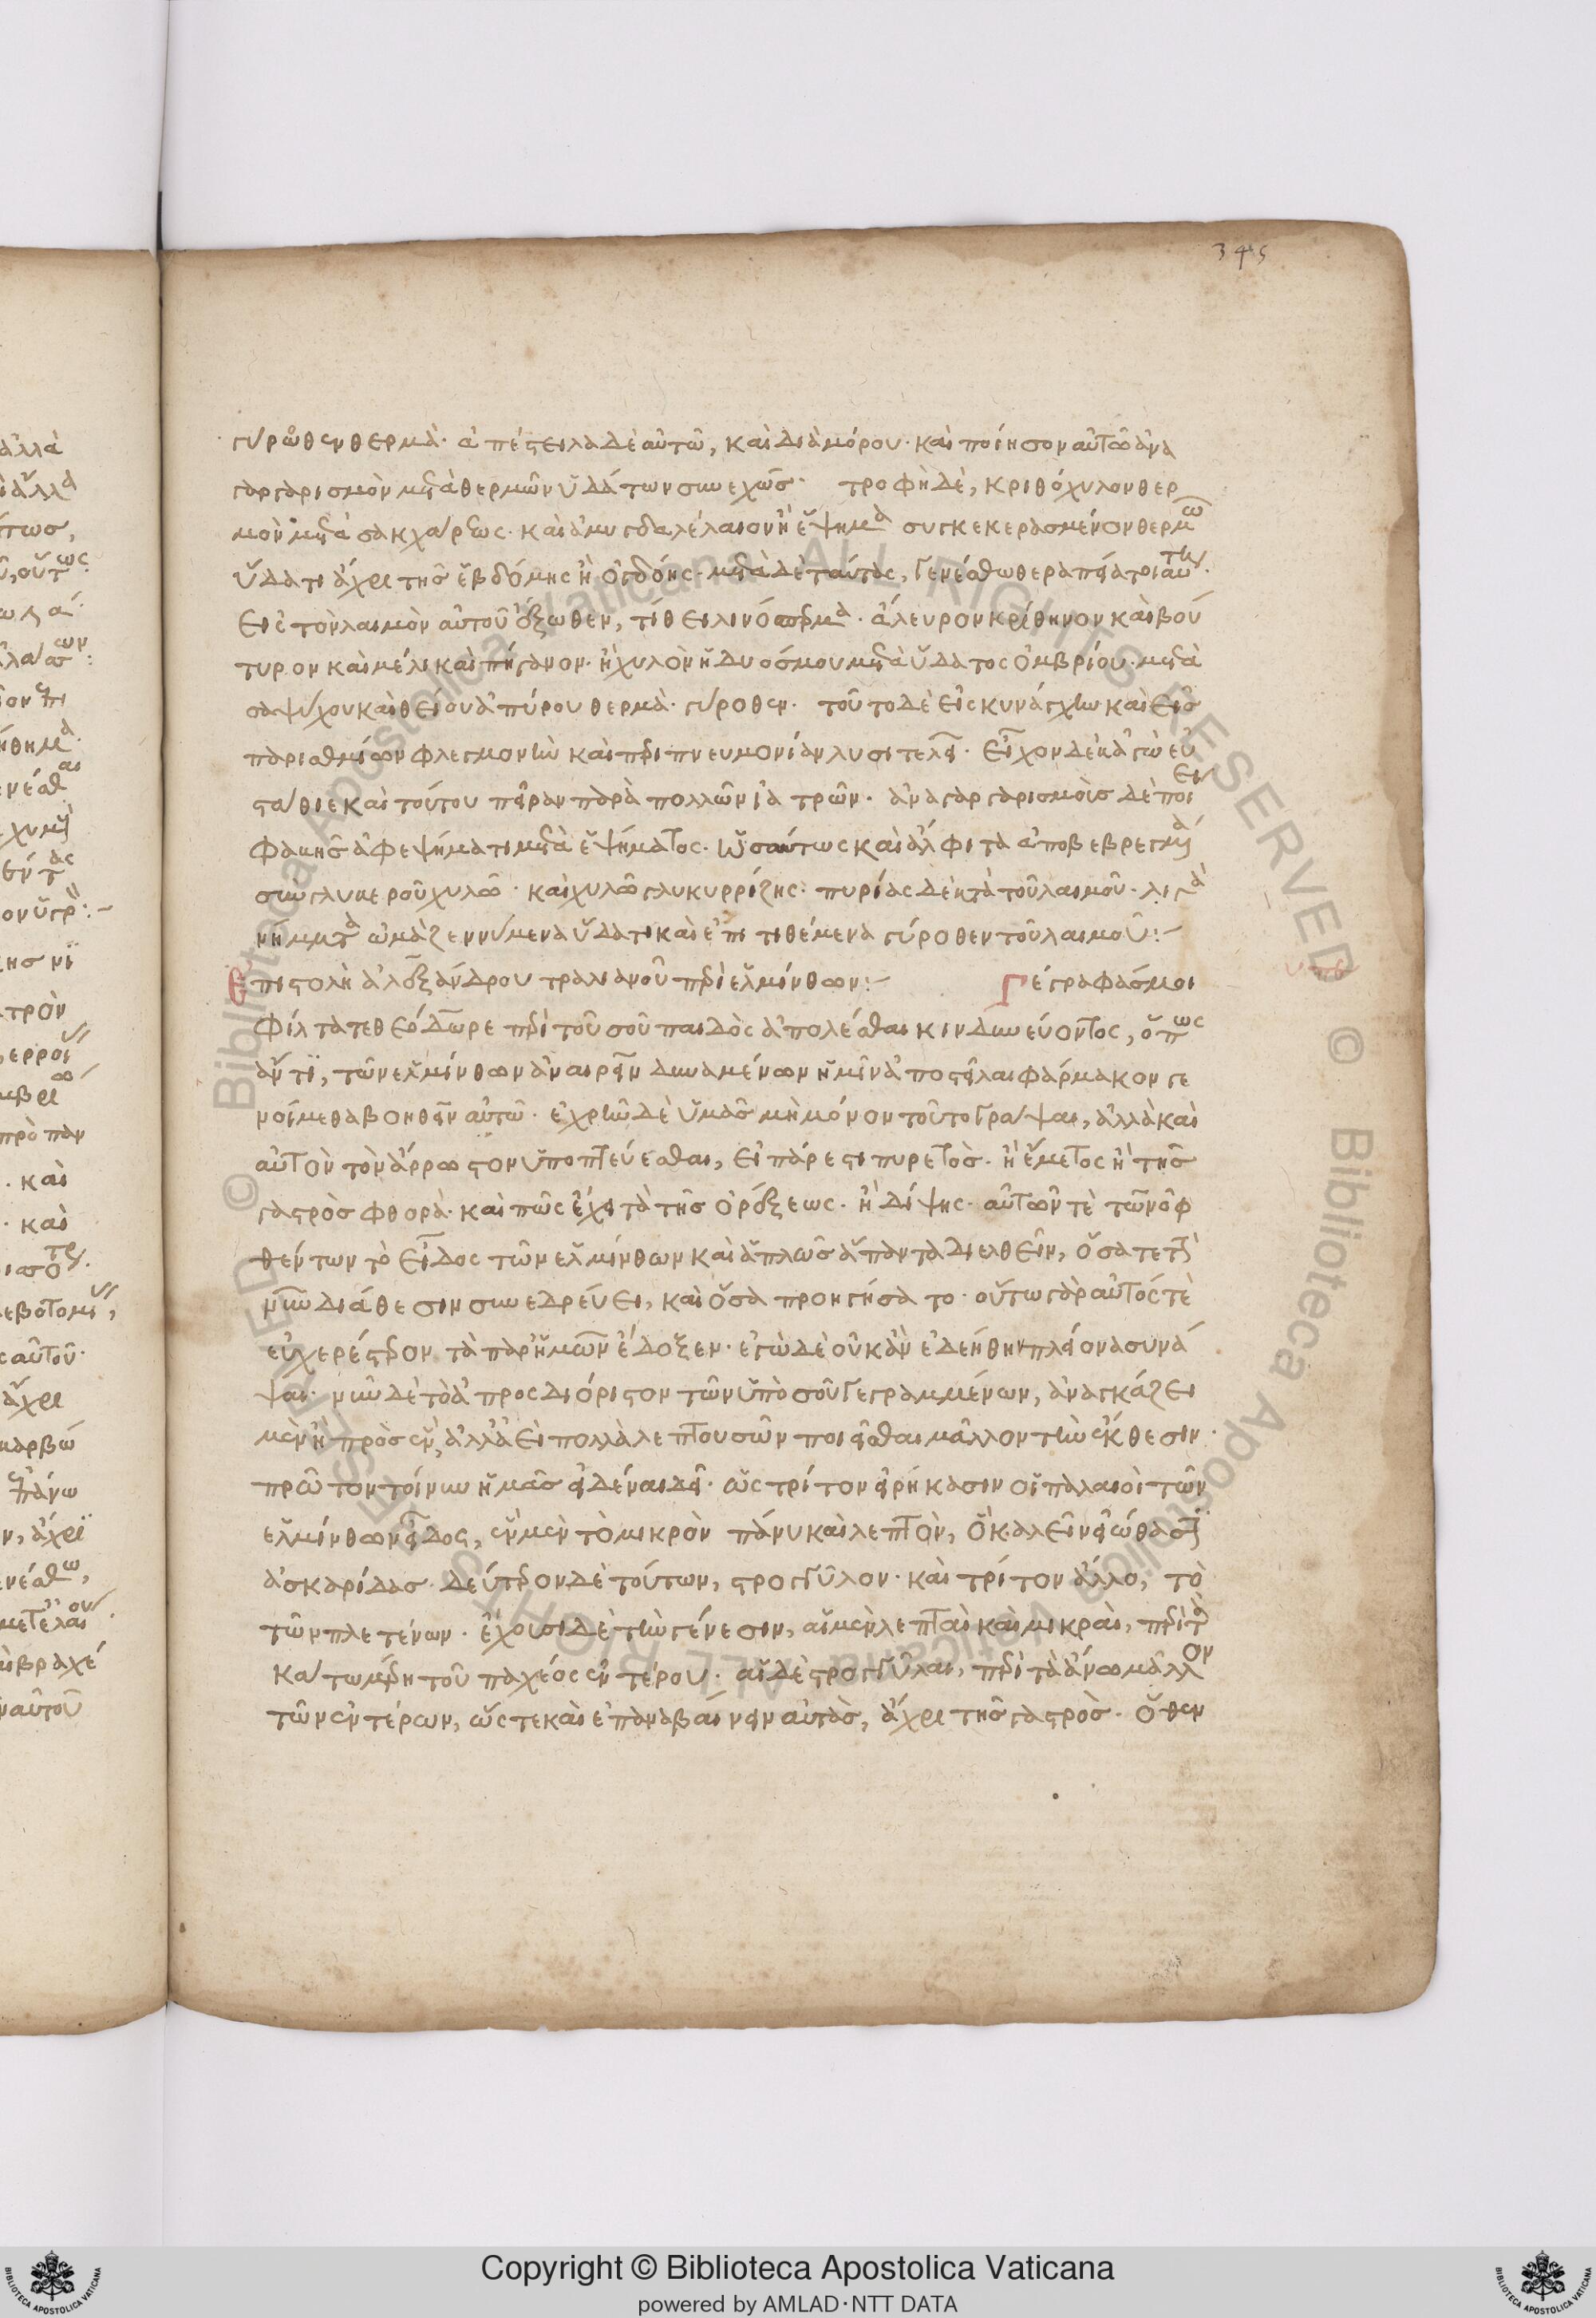 345
γύρωθεν θερμά· ἀπέστειλα δὲ αὐτῶ, καὶ διὰ μόρου· καὶ ποίησον αὐτῶ ἀνα
γαργαρισμὸν μετὰ θερμῶν ὑδάτων συνεχῶς· τροφὴ δὲ, κριθόχυλον θερ
μὸν μετὰ σακχάρεως· καὶ ἀμυγδαλέλαιον ἢ ἕψημα συγκεκερασμένον θερμῶ
ὕδατι ἄχρι τῆς ἑβδόμης ἢ ὀγδόης· μετὰ δὲ ταύτας, γενέσθω θεραπεία τοιαύτη·
εἰς τὸν λαιμὸν αὐτοῦ ἔξωθεν, τίθει λινόσπερμα· ἄλευρον κρίθηνον καὶ βού
τυρον καὶ μέλι καὶ πήγανον· ἢ χυλὸν ἡδυόσμου μετὰ ὕδατος ὀμβρίου· μετὰ
σαψύχου καὶ θείου ἀπύρου θερμὰ· γύροθεν· τοῦτο δὲ εἰς κυνάγχην καὶ εἰς
παρισθμίων φλεγμονὴν καὶ περιπνευμονίαν λυσιτελεῖ· εἶχον δὲ κἀγὼ εὐ
σταθιε καὶ τούτου πεῖραν παρὰ πολλῶν ἰατρῶν· ἀναγαργαρισμοῖς δὲ ποίει
φακῆς ἀφεψήματι μετὰ ἑψήματος· ὡσαύτως καὶ ἄλφιτα ἀποβεβρεγμένα
σὺν γλυκεροῦ χυλῶ· καὶ χυλῶ γλυκυρρίζης· πυρίας δὲ κατὰ τοῦ λαιμοῦ·
νήμματα ὠμὰ ζεννύμενα ὕδατι καὶ ἐπιτιθέμενα γύροθεν τοῦ λαιμοῦ:-
Ἐπιστολὴ ἀλεξάνδρου τραλιανοῦ περὶ ἑλμίνθων:- Γέγραφάς μοι
φίλτατε θεόδωρε περὶ τοῦ σοῦ παιδὸς ἀπολέσθαι κινδυνεύοντος, ὅπως
ἄν τι, τῶν ἑλμίνθων ἀναιρεῖν δυναμένων ἡμῖν ἀποστεῖλαι φάρμακον γε
νοίμεθα βοηθεῖν αὐτῶ· ἐχρῆν δὲ ὑμᾶς μὴ μόνον τοῦτο γράψαι, ἀλλὰ καὶ
αὐτὸν τὸν ἄρρωστον ὑποπτεύεσθαι, εἰ πάρεστι πυρετὸς· ἢ ἔμετος ἢ τῆς
γαστρὸς φθορὰ· καὶ πῶς ἔχει τὰ τῆς ὀρέξεως· ἢ δίψης· αὐτῶν τὲ τῶν ὀφ
θέντων τὸ εἶδος τῶν ἑλμίνθων καὶ ἁπλῶς ἅπαντα διελθεῖν, ὅσα τε τὴν
νῦν διάθεσιν συνεδρεύει, καὶ ὅσα προηγήσατο· οὕτω γὰρ αὐτός τὲ
εὐχερέστερον τὰ παρ' ἡμῶν ἐδόξεν· ἐγὼ δὲ οὐκ ἂν ἐδεήθην πλείονα συνά
ψαι· νῦν δὲ τὸ ἀπροσδιόριστον τῶν ὑπὸ σοῦ γεγραμμένων, ἀναγκάζει
μὲν ἢ πρὸς ἓν, ἀλλ' ἀεὶ πολλὰ λεπτουσῶν ποιεῖσθαι μᾶλλον τὴν ἔκθεσιν·
πρῶτον τοίνυν ἡμᾶς εἰδέναι δεῖ· ὡς τρίτον εἰρήκασιν οἱ παλαιοὶ τῶν
ἑλμίνθων εἶδος, ἓν μὲν τὸ μικρὸν πάνυ καὶ λεπτὸν, ὃ καλεῖν εἰώθασιν
ἀσκαρίδας· δεύτερον δὲ τούτων, στρογγῦλον· καὶ τρίτον ἄλλο, τὸ
τῶν πλετένων· ἔχουσι δὲ τὴν γένεσιν, αἱ μὲν λεπταὶ καὶ μικραὶ, περὶ τὸ
κάτω μέρη τοῦ παχέος ἐντέρου· αἱ δὲ στρογγῦλαι, περὶ τὰ ἄνω μᾶλλον
τῶν ἐντέρων, ὥστε καὶ ἐπαναβαίνειν αὐτὰς, ἄχρι τῆς γαστρὸς· ὅθεν
Copyright © Biblioteca Apostolica Vaticana
powered by AMLAD·NTT DATA